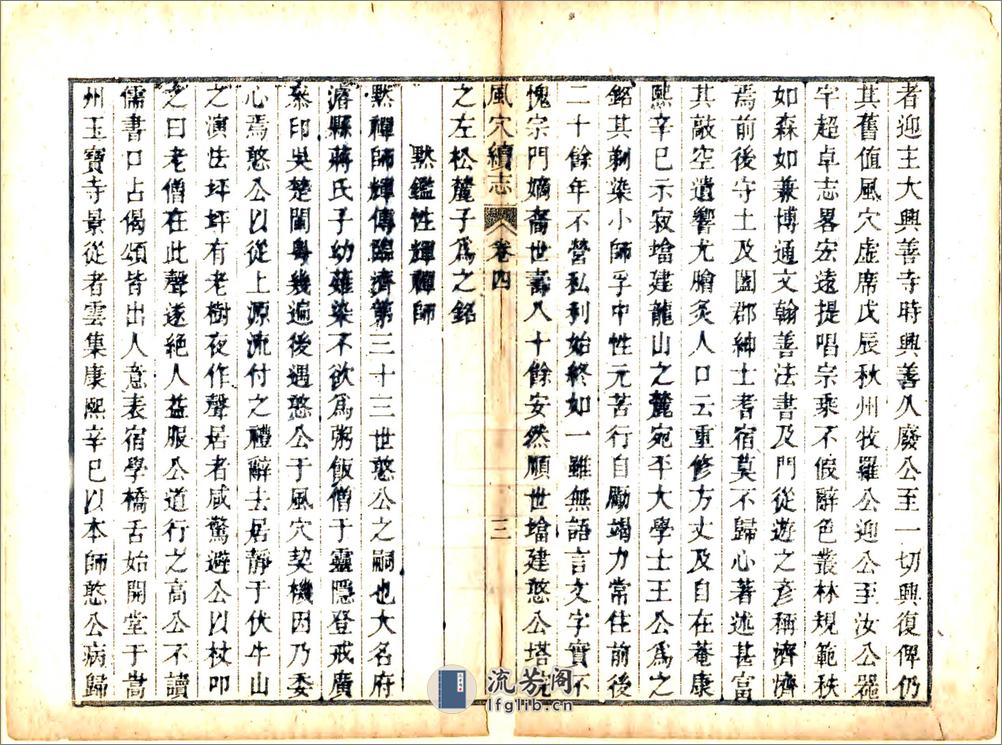 者迎主大興善寺時興善久廢公至一切興復俾仍
其舊值風穴虛席戊辰秋州牧羅公迎公至汝公器
宇超卓志畧宏遠提唱宗乘不假辭色叢林規範秩
如森如兼博通文翰善法書及門從遊之彥稱濟濟
焉前後守土及闔郡紳士耆宿莫不歸心著述甚富
其敲空遺響尤膾炙人口云重修方丈及自在菴康
熙辛巳示寂墖建龍山之麓宛平大學士王公為之
銘其剃染小師孚中性元苦行自勵竭力常住前後
二十餘年不營私利始終如一雖無語言文字實不
愧宗門嫡裔世壽八十餘安然順世墖建憨公塔院
之左松麓子為之銘
風穴續志
卷四
三
默鑑性輝禪師
默禪師輝傳臨濟第三十三世憨公之嗣也大名府
濬縣蔣氏子幼薙染不欲為粥飯僧于靈隱登戒廣
叅印吳楚閩粵幾遍後遇憨公于風穴契機因乃委
心焉憨公以從上源流付之禮辭去居靜于伏牛山
之演法坪坪有老樹夜作聲居者咸驚避公以杖叩
之曰老僧在此聲遂絕人益服公道行之高公不讀
儒書口占偈頌皆出人意表宿學橋舌始開堂于嵩
州玉寶寺景從者雲集康熙辛巳以本師憨公病歸
流芳阁
lfglib.cn